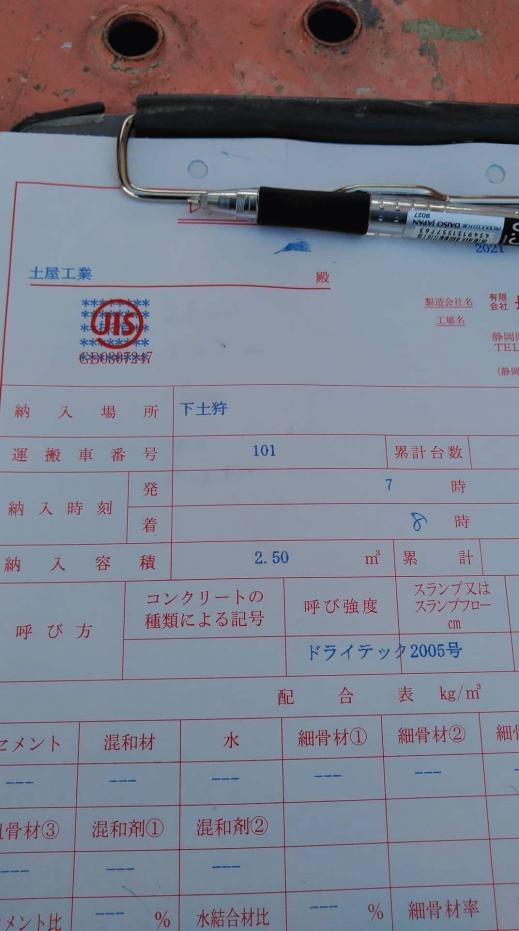 PRODUCED FOR DAISO JAPAN
B027
2021
土屋工業 殿
JIS
GB0807247
製造会社名 有限
会社
工場名
静岡
TEL
(静岡
納入場所 下土狩
運搬車番号 101 累計台数
納入時刻 発 7 時
着 8 時
納入容積 2.50 m³ 累計
呼び方 コンクリートの
種類による記号 呼び強度 スランプ又は
スランプフロー
cm
ドライテック2005号
配合表 kg/m³
セメント 混和材 水 細骨材① 細骨材② 細骨
--- --- --- --- ---
粗骨材③ 混和剤① 混和剤②
--- --- ---
メント比 --- % 水結合材比 --- % 細骨材率